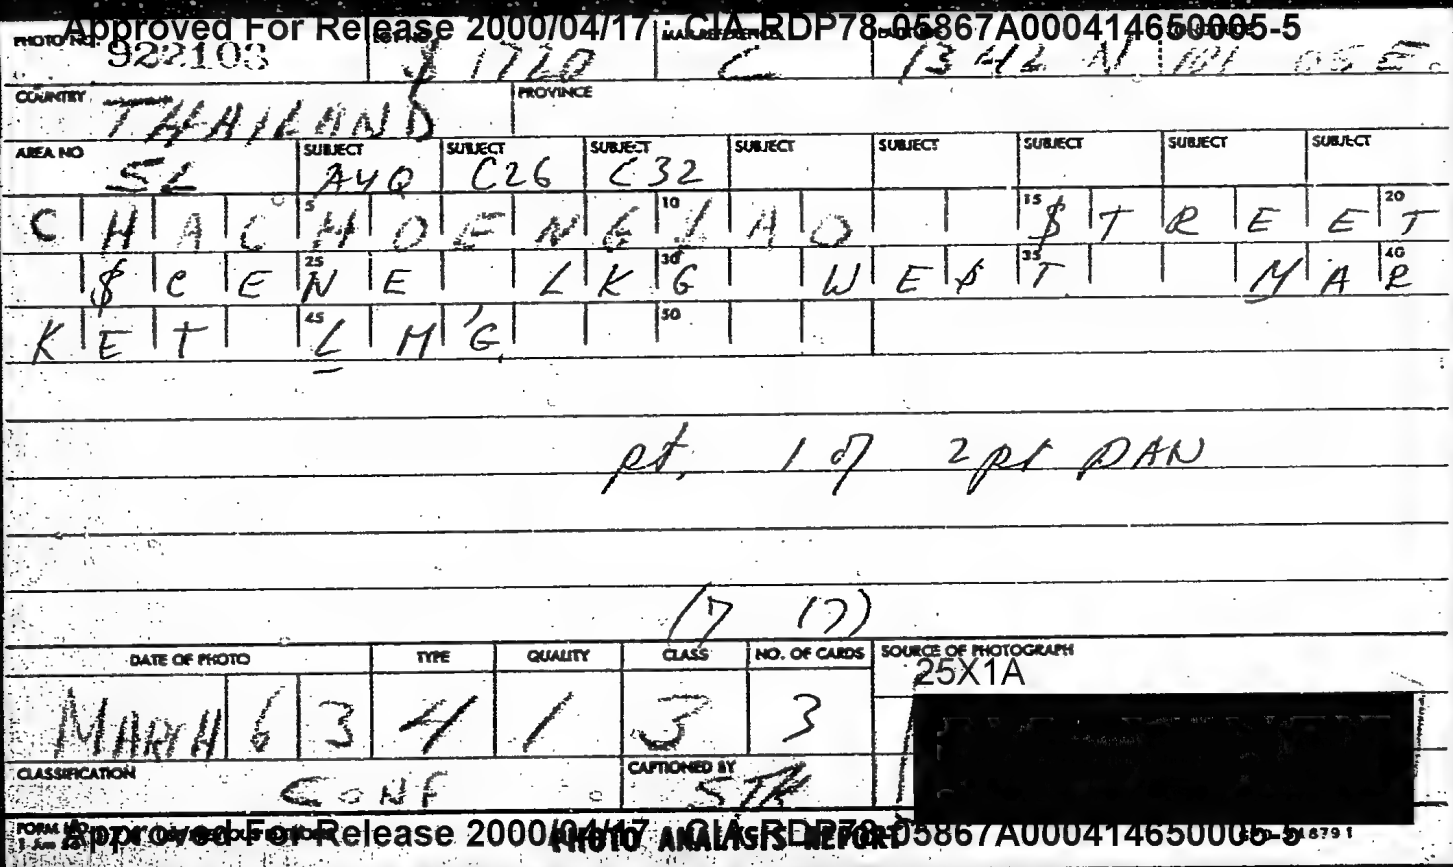 Approved For Release 2000/04/17 : CIA-RDP78-05867A000414650005-5
PHOTO NO. 922103 $ 1720 C 13 42 N 101 05 E.
COUNTRY THAILAND PROVINCE
AREA NO 5L SUBJECT A4Q SUBJECT C26 SUBJECT C32 SUBJECT SUBJECT SUBJECT SUBJECT SUBJECT
CHACHOENGSAO 5 10 15 $TREET 20
$CENE 25 LKG 30 WE$T 35 MAR 40
KET 45 LM'G 50
pt. 1 of 2 pt PAN
(7 17)
DATE OF PHOTO TYPE QUALITY CLASS NO. OF CARDS SOURCE OF PHOTOGRAPH
25X1A
MARCH 6 3 4 1 3 3
CLASSIFICATION CONF CAPTIONED BY STR
Approved For Release 2000/04/17 : CIA-RDP78-05867A000414650005-5
PHOTO ANALYSIS REPORT